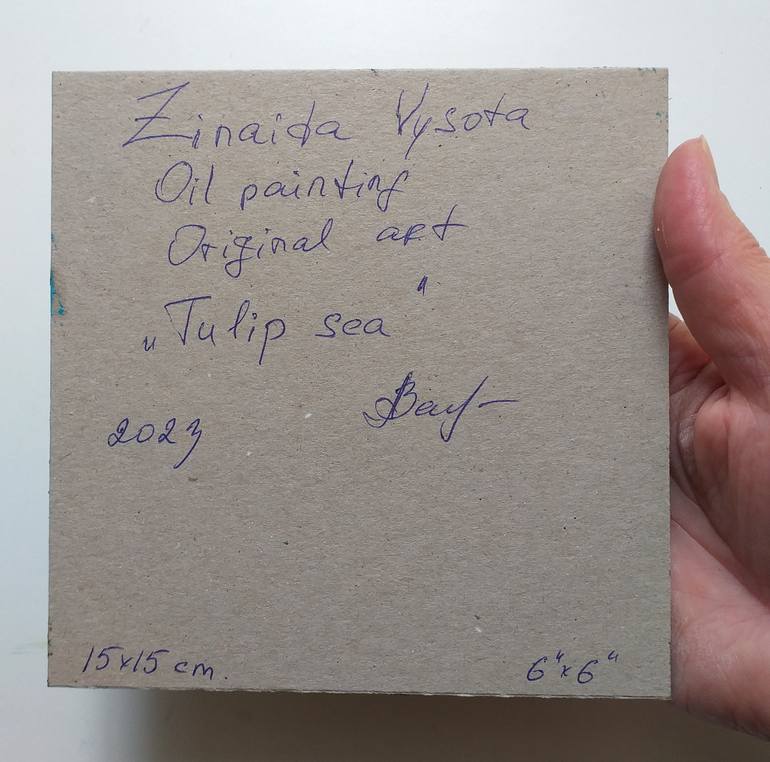 Zinaida Vysota
Oil painting
Original art
„Tulip sea"
2023
15x15 cm.
6"x6"